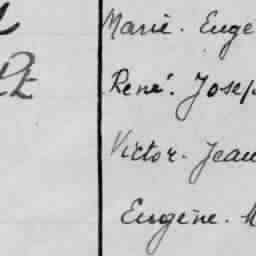 Marie. Euge
René. Josep
Victor. Jean
Eugène. M